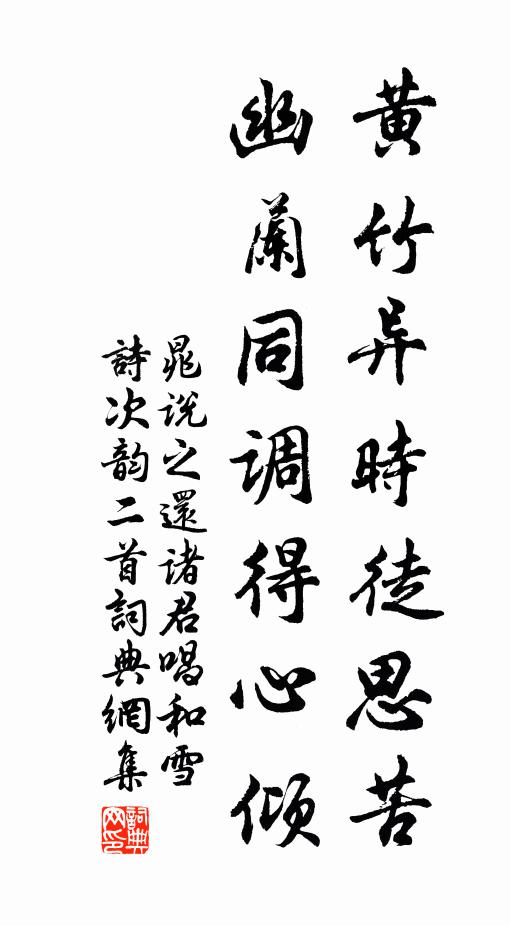 黄竹异時徒思苦
幽蘭同调得心傾
晁说之還诸君唱和雪
詩次韵二首詞典網集
詞典网印